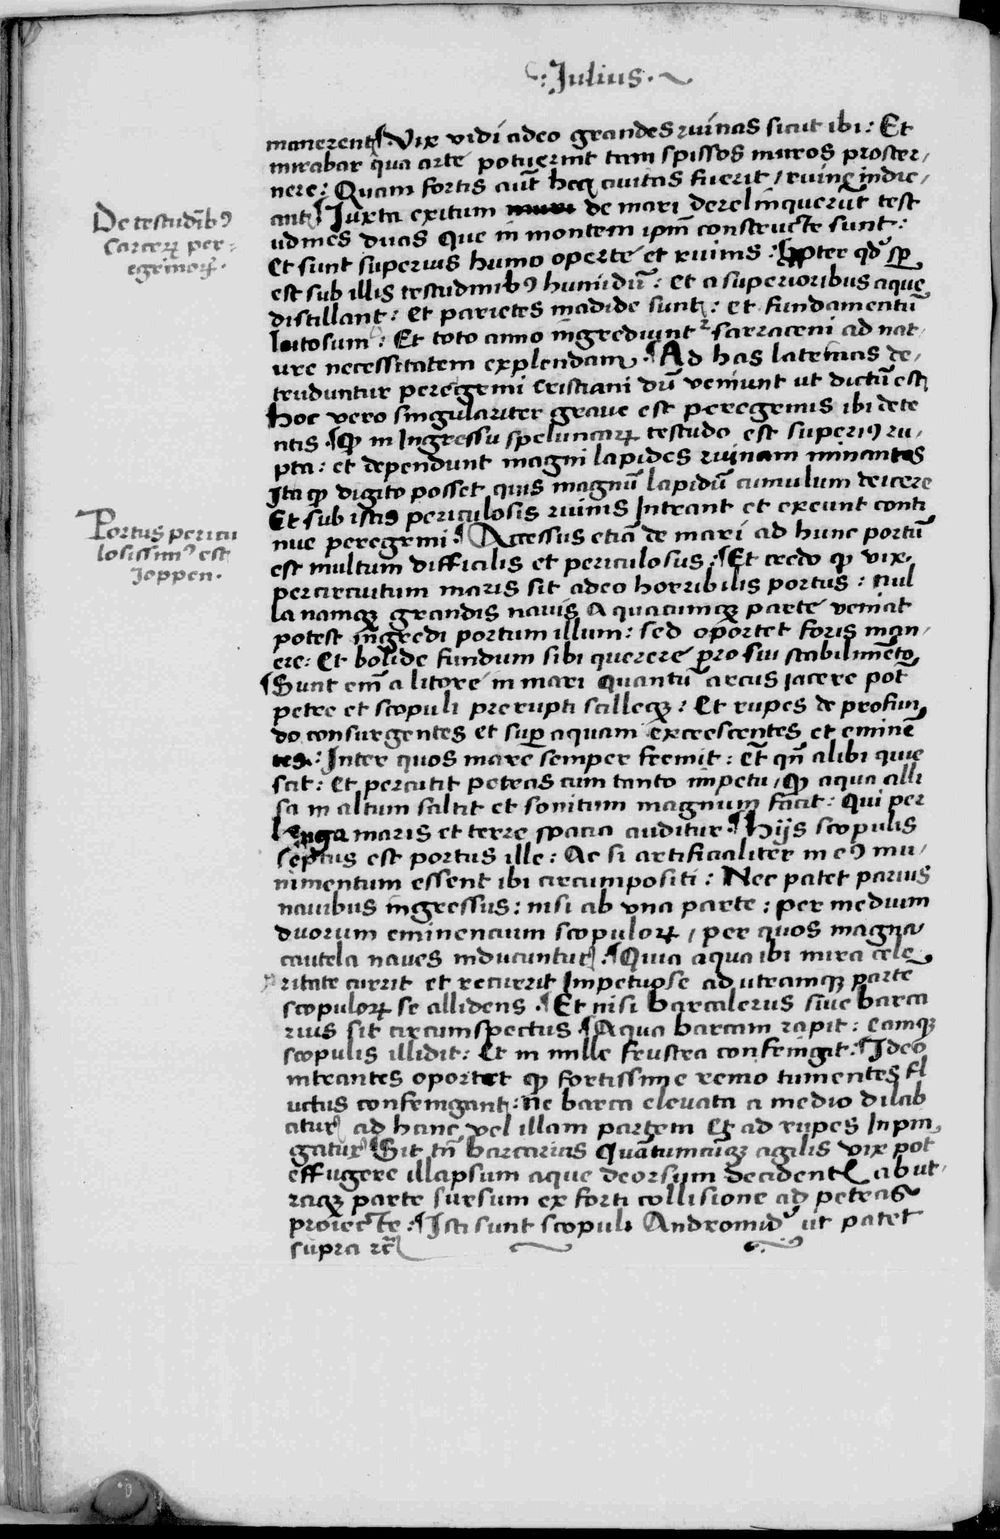 Julius.
manerent. ¶ Vix vidi adeo grandes ruinas sicut ibi: Et
mirabar qua arte potuerint tam spissos muros proster/
nere: Quam fortis aut̄ hec civitas fuerit / ruine indic/
De testudibꝰ
carcerꝝ per=
egrinorꝝ.
ant. ¶ Juxta exitum de mari derelinquerūt test
udines duas que in montem ip̄m constructe sunt:
Et sunt superius humo operte et ruinis: ꝓpter qd̄ sꝑ
est sub illis testudinibꝰ humidū: et a superioribus aque
distillant: et parietes madide sunt: et fundamentū
lutosum: Et toto anno ingrediunt᷑ sarraceni ad nat
ure necessitatem explendam. ¶ Ad has latrinas de/
truduntur peregrini cristiani dū veniunt ut dictū est
hoc vero singulariter grave est peregrinis ibi dete
ntis. ¶ Qꝫ in Ingressu speluncarꝝ testudo est superiꝰ ru/
pta: et dependunt magni lapides ruinam minantes
Ita qꝫ digito posset quis magnū lapidū cumulum deicere
Portus pericu
losissimꝰ est
Joppen.
Et sub istis periculosis ruinis Intrant et exeunt conti
nue peregrini. ¶ Accessus eciā de mari ad hunc portū
est multum difficilis et periculosus. ¶ Et credo qꝫ vix
percircuitum maris sit adeo horribilis portus: nul
la namqꝫ grandis navis a quacumqꝫ parte veniat
potest ingredi portum illum: sed oportet foris man/
ere: Et bolide fundum sibi querere pro sui stabilimēto
¶ Sunt em̄ a litore in mari quantū arcus jacere pot̄
petre et scopuli prerupti scilleqꝫ: Et rupes de profun
do consurgentes et suꝑ aquam excrescentes et eminē
tes: Inter quos mare semper fremit: et̄ qn̄ alibi quie
scit: Et percutit petras cum tanto impetu, qꝫ aqua alli
sa in altum saltit et sonitum magnum facit: qui per
longa maris et terre spacia auditur. ¶ Hijs scopulis
septus est portus ille: Ac si artificialiter in eꝰ mu/
nimentum essent ibi circumpositi: Nec patet parius
navibus ingressus: nisi ab una parte: per medium
duorum eminencium scopulorꝝ / per quos magna
cautela naves inducuntur. ¶ Quia aqua ibi mira cele
ritate currit et recurrit Impetuose ad utramqꝫ parte
scopulorꝝ se allidens. ¶ Et nisi barcalerus sive barca
rius sit circumspectus ¶ Aqua barcam rapit: eamqꝫ
scopulis illidit: Et in mille frustra confringit: ¶ Ideo
intrantes oportet qꝫ fortissime remo tumentes fl
uctus confringant: ne barca elevata a medio dilab
atur ad hanc vel illam partem et ad rupes Inpin
gatur ¶ Sit tn̄ barcarius quātumcūqꝫ agilis vix pot
effugere illapsum aque deorsum decidentis ab ut/
raqꝫ parte sursum ex forti collisione ad petras
proiecte: ¶ Isti sunt scopuli Andromidꝰ ut patet
supra ꝛc̄